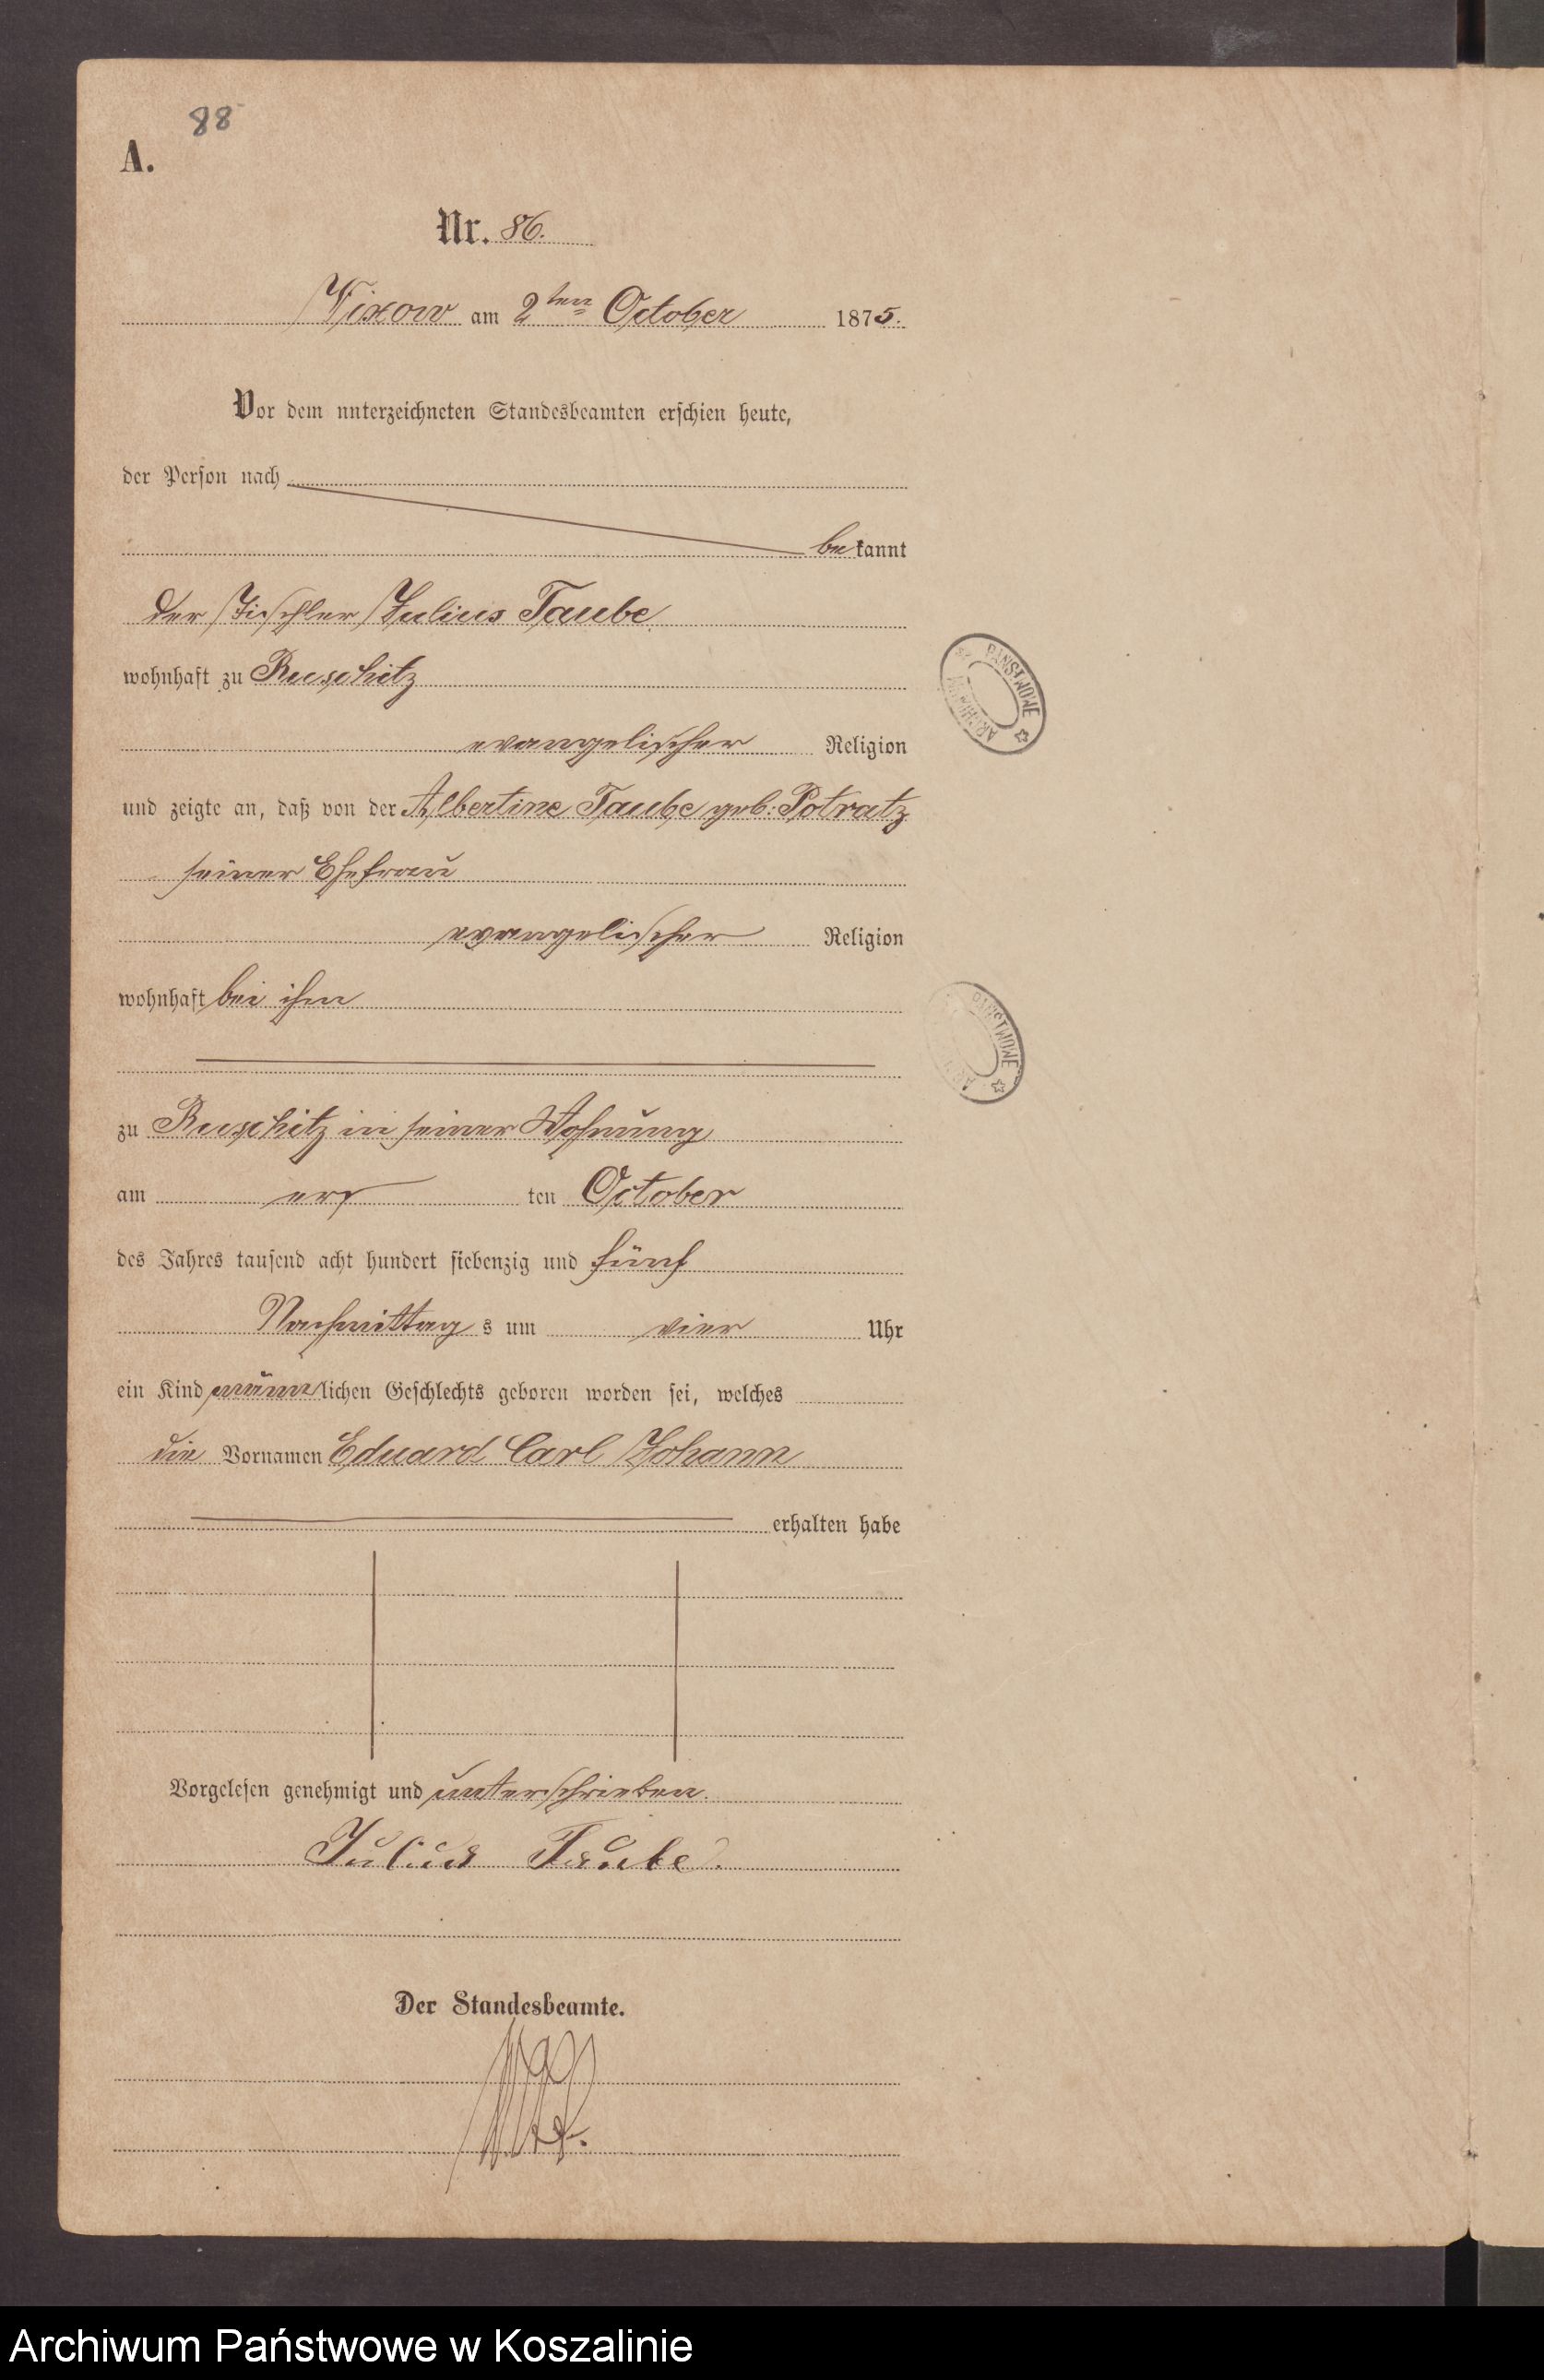 88
A.
Nr. 86.
Vixow am 2ten October 1875.
Vor dem unterzeichneten Standesbeamten erschien heute,
der Person nach
bekannt
der Tischler Julius Taube
wohnhaft zu Ruschitz
evangelischer Religion
und zeigte an, daß von der Albertine Taube geb: Potratz
seiner Ehefrau
evangelischer Religion
wohnhaft bei ihm
zu Ruschitz in seiner Wohnung
am ten October
des Jahres tausend acht hundert siebenzig und fünf
Nachmittags um vier Uhr
ein Kind männlichen Geschlechts geboren worden sei, welches
die Vornamen Eduard Carl Johann
erhalten habe
Vorgelesen genehmigt und unterschrieben.
Julius Taube.
Der Standesbeamte.
PAŃSTWOWE ARCHIWUM
PAŃSTWOWE
Archiwum Państwowe w Koszalinie